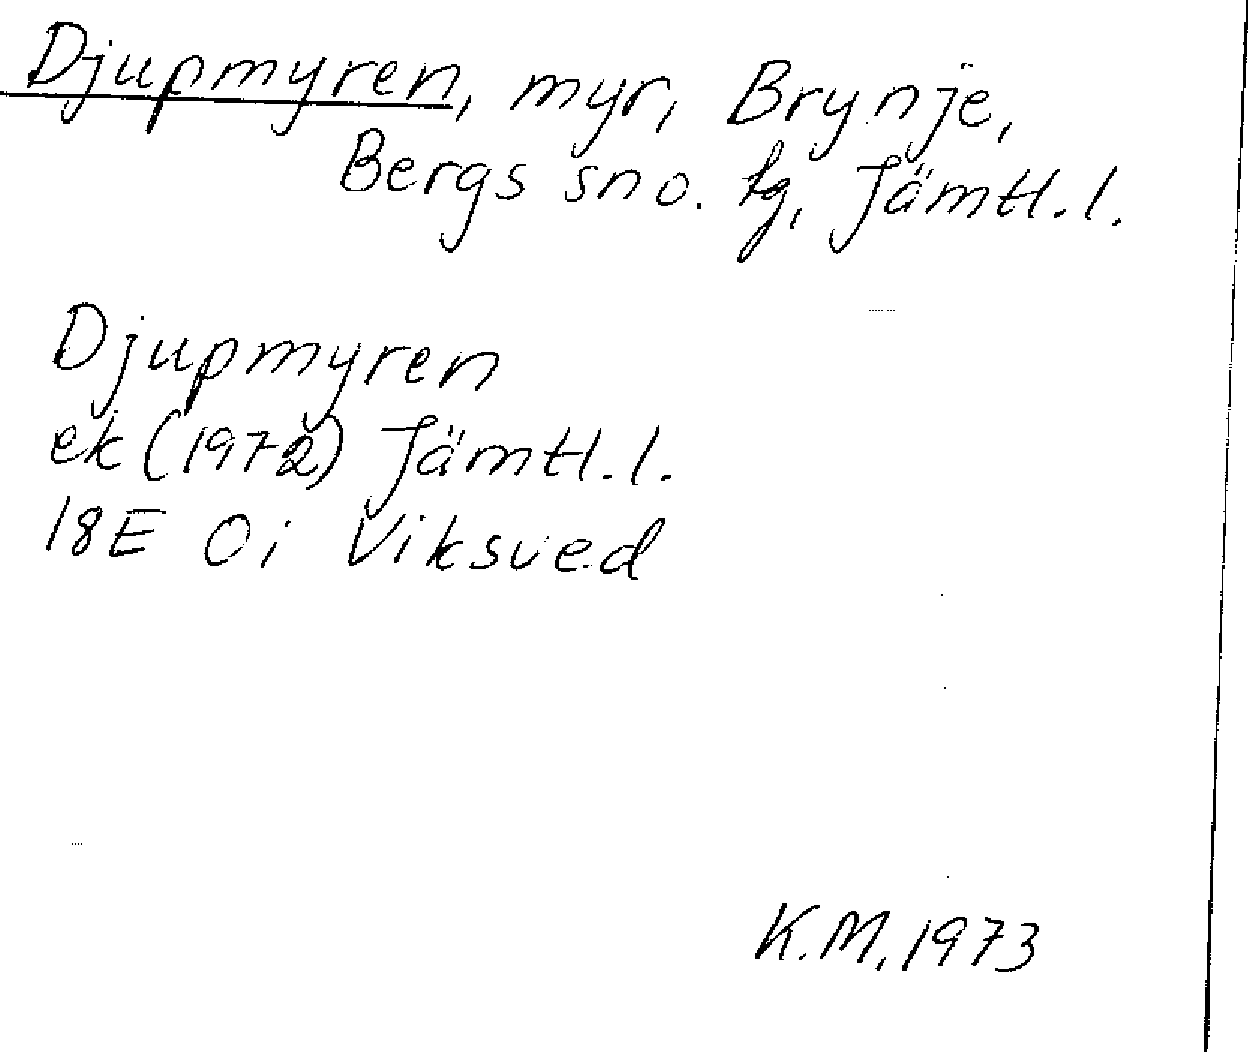 Djupmyren, myr, Brynje,
Bergs sno. tg, Jämtl. l.
Djupmyren
ek (1972) Jämtl. l.
18E 0i Viksved
K.M. 1973